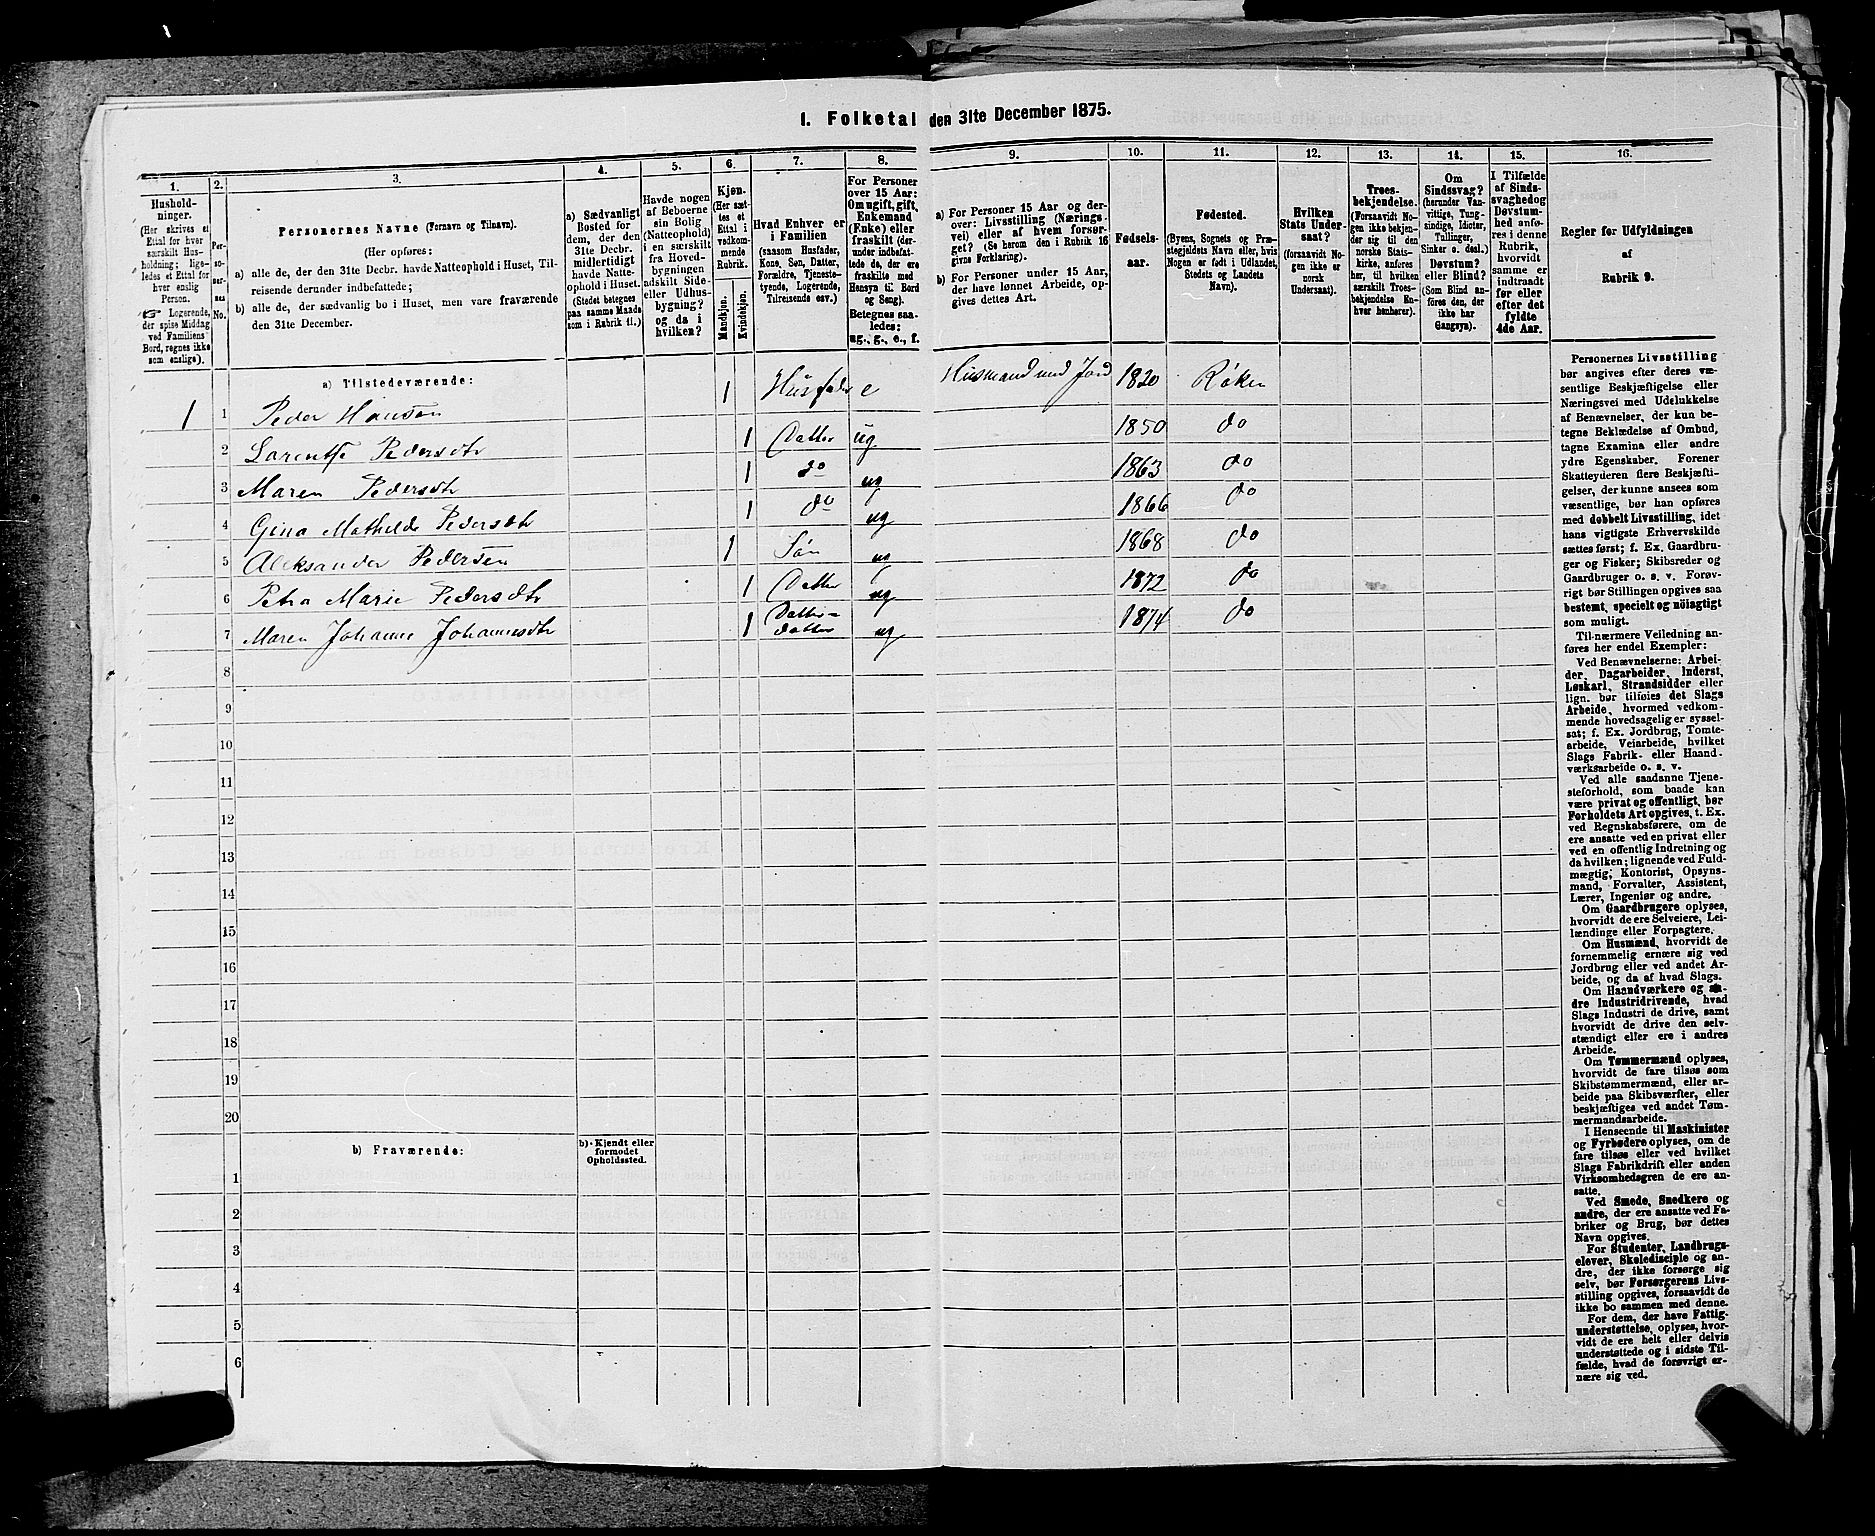 I. Folketal den 31te December 1875.
1. 2. 3. 4. 5. 6. 7. 8. 9. 10. 11. 12. 13. 14. 15. 16.
Hushold-
ninger.
(Her skrives et
Ettal for hver
særskilt Hus-
holdning; lige-
ledes et Ettal for
hver enslig
Person.
☞ Logerende,
der spise Middag
ved Familiens
Bord, regnes ikke
som enslige).
Per-
so-
ner-
nes
No.
Personernes Navne (Fornavn og Tilnavn).
(Her opføres:
a) alle de, der den 31te Decbr. havde Natteophold i Huset, Til-
reisende derunder indbefattede;
b) alle de, der sædvanlig bo i Huset, men vare fraværende
den 31te December.
a) Sædvanligt
Bosted for
dem, der den
31te Decbr.
midlertidigt
havde Natte-
ophold i Huset.
(Stedet betegnes
paa samme Maade
som i Rubrik 11.)
Havde nogen
af Beboerne
sin Bolig
(Natteophold)
i en særskilt
fra Hoved-
bygningen
adskilt Side-
eller Udhus-
bygning?
og da i
hvilken?
Kjøn.
(Her sæt-
tes et
Ettal i
vedkom-
mende
Rubrik.
Mandkjøn.
Kvindekjøn.
Hvad Enhver er
i Familien
(saasom Husfader,
Kone, Søn, Datter,
Forældre, Tjeneste-
tyende, Logerende,
Tilreisende osv.)
For Personer
over 15 Aar:
Om ugift, gift,
Enkemand
(Enke) eller
fraskilt (der-
under indbefat-
tede de, der ere
fraskilte med
Hensyn til Bord
og Seng).
Betegnes saa-
ledes:
ug., g., e., f.
a) For Personer 15 Aar og der-
over: Livsstilling (Nærings-
vei) eller af hvem forsør-
get? (Se herom den i Rubrik 16
givne Forklaring).
b) For Personer under 15 Aar,
der have lønnet Arbeide, op-
gives dettes Art.
Fødsels-
aar.
Fødested.
(Byens, Sognets og Præ-
stegjeldets Navn eller, hvis
Nogen er født i Udlandet,
Stedets og Landets
Navn).
Hvilken
Stats Under-
saat?
(forsaavidt No-
gen ikke er
norsk
Undersaat).
Troes-
bekjendelse.
(Forsaavidt No-
gen ikke bekjen-
der sig til den
norske Stats-
kirke, anføres
her, til hvilken
særskilt Troes-
bekjendelse En-
hver henhører).
Om
Sindssvag?
(herunder Van-
vittige, Tung-
sindige, Idioter,
Tullinger,
Sinker o. desl.)
Døvstum?
eller Blind?
(Som Blind an-
føres den, der
ikke har
Gangsyn).
I Tilfælde
af Sinds-
svaghed og
Døvstum-
hed anfø-
res i denne
Rubrik,
hvorvidt
samme er
indtraadt
før eller
efter det
fyldte
4de Aar.
Regler for Udfyldningen
af
Rubrik 9.
a) Tilstedeværende:
1 1 Peder Hansen 1 Husfader e Husmand med Jord 1820 Røken
2 Larentse Pedersdtr 1 Datter ug 1850 do
3 Maren Pedersdtr 1 do ug 1863 do
4 Gina Mathilde Pedersdtr 1 do ug 1866 do
5 Aleksander Pedersen 1 Søn ug 1868 do
6 Petra Marie Pedersdtr 1 Datter ug 1872 do
7 Maren Johanne Johannesdtr 1 Datter-
datter ug 1874 do
8
9
10
11
12
13
14
15
16
17
18
19
20
b) Fraværende:
b) Kjendt eller
formodet
Opholdssted.
1
2
3
4
5
6
Personernes Livsstilling
bør angives efter deres væ-
sentlige Beskjæftigelse eller
Næringsvei med Udelukkelse
af Benævnelser, der kun be-
tegne Beklædelse af Ombud,
tagne Examina eller andre
ydre Egenskaber. Forener
Skatteyderen flere Beskjæfti-
gelser, der kunne ansees som
væsentlige, bør han opføres
med dobbelt Livsstilling, idet
hans vigtigste Erhvervskilde
sættes først; f. Ex. Gaardbru-
ger og Fisker; Skibsreder og
Gaardbruger o. s. v. Forøv-
rigt bør Stillingen opgives saa
bestemt, specielt og nøiagtigt
som muligt.
Til nærmere Veiledning an-
føres her endel Exempler:
Ved Benævnelserne: Arbei-
der, Dagarbeider, Inderst,
Løskarl, Strandsidder eller
lign. bør tilføies det Slags
Arbeide, hvormed vedkom-
mende hovedsagelig er syssel-
sat; f. Ex. Jordbrug, Tomte-
arbeide, Veiarbeide, hvilket
Slags Fabrik- eller Haand-
værksarbeide o. s. v.
Ved alle saadanne Tjene-
steforhold, som baade kan
være privat og offentligt, bør
Forholdets Art opgives, t. Ex.
ved Regnskabsførere, om de
ere ansatte ved en privat eller
ved en offentlig Indretning og
da hvilken; lignende ved Fuld-
mægtig, Kontorist, Opsyns-
mand, Forvalter, Assistent,
Lærer, Ingeniør og andre.
Om Gaardbrugere oplyses,
hvorvidt de ere Selveiere, Lei-
lændinge eller Forpagtere.
Om Husmænd, hvorvidt de
fornemmelig ernære sig ved
Jordbrug eller ved andet Ar-
beide, og da af hvad Slags.
Om Haandværkere og an-
dre Industridrivende, hvad
Slags Industri de drive, samt
hvorvidt de drive den selv-
stændigt eller ere i andres
Arbeide.
Om Tømmermænd oplyses,
hvorvidt de fare tilsøs som
Skibstømmermænd, eller ar-
beide paa Skibsværfter, eller
beskjæftiges ved andet Tøm-
mermandsarbeide.
I Henseende til Maskinister
og Fyrbødere oplyses, om de
fare tilsøs eller ved hvilket
Slags Fabrikdrift eller anden
Virksomhedsgren de ere an-
satte.
Ved Smede, Snedkere og
andre, der ere ansatte ved Fa-
briker og Brug, bør dettes
Navn opgives.
For Studenter, Landbrugs-
elever, Skoledisciple og an-
dre, der ikke forsørge sig
selv, bør Forsørgerens Livs-
stilling opgives, forsaavidt de
ikke bo sammen med denne.
For dem, der have Fattig-
understøttelse, oplyses, hvor-
vidt de ere helt eller delvis
understøttede og i sidste Til-
fælde, hvad de forøvrigt er-
nære sig ved.